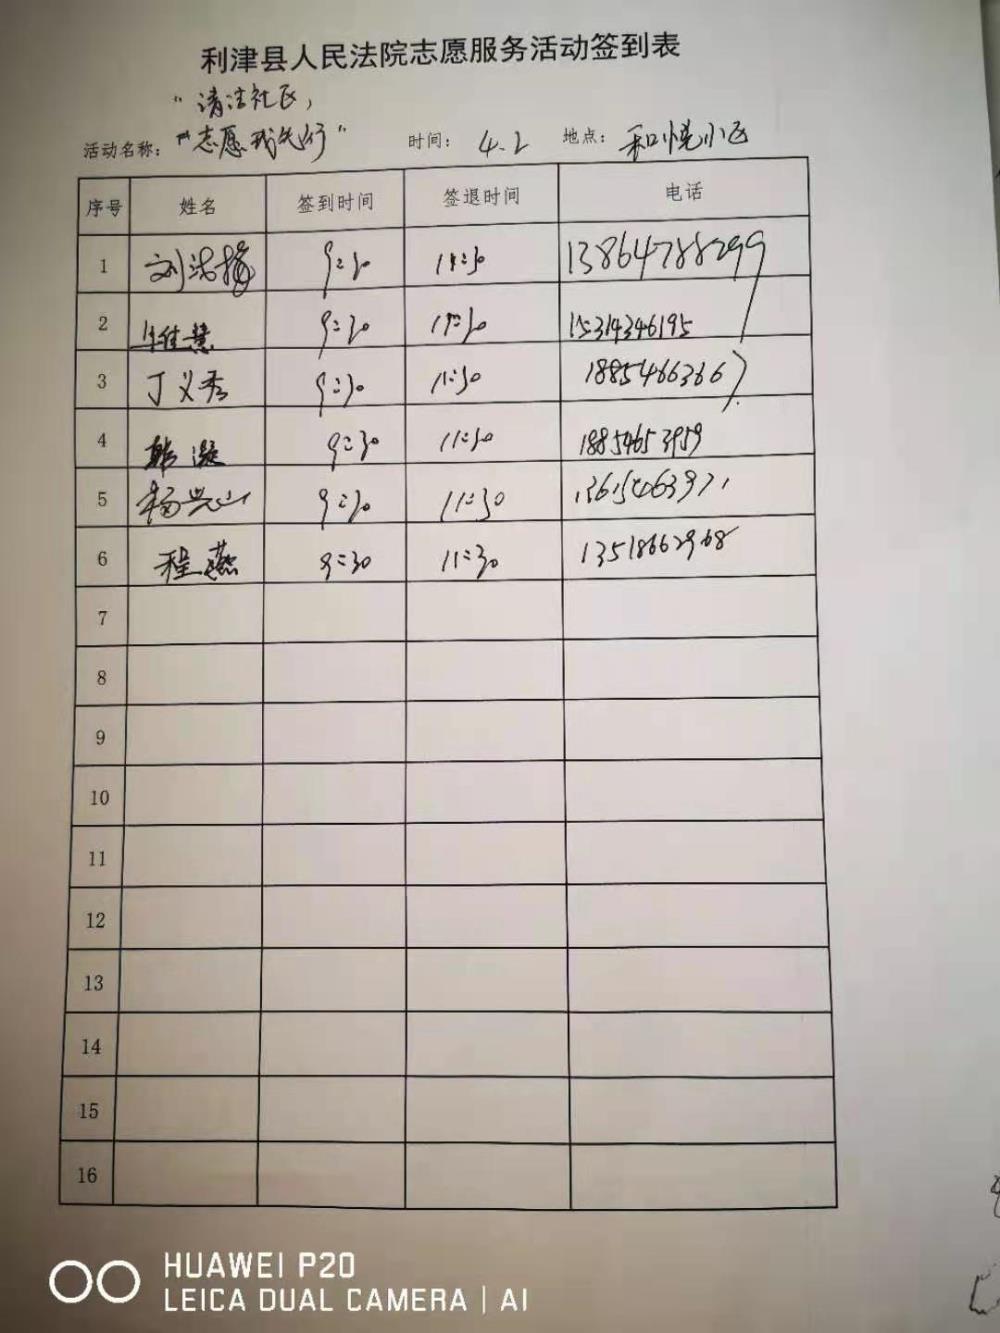 利津县人民法院志愿服务活动签到表
"清洁社区，
活动名称： "志愿我先行" 时间： 4.2 地点： 和悦小区
序号 姓名 签到时间 签退时间 电话
1 刘 9:30 11:30 13864788299
2 佳慧 9:30 11:30 15314346195
3 丁义秀 9:30 11:30 18854663667
4 韩凝 9:30 11:30 18854653959
5 杨兴山 9:30 11:30 13615463971
6 程燕 9:30 11:30 13518662968
7
8
9
10
11
12
13
14
15
16
HUAWEI P20
LEICA DUAL CAMERA | AI